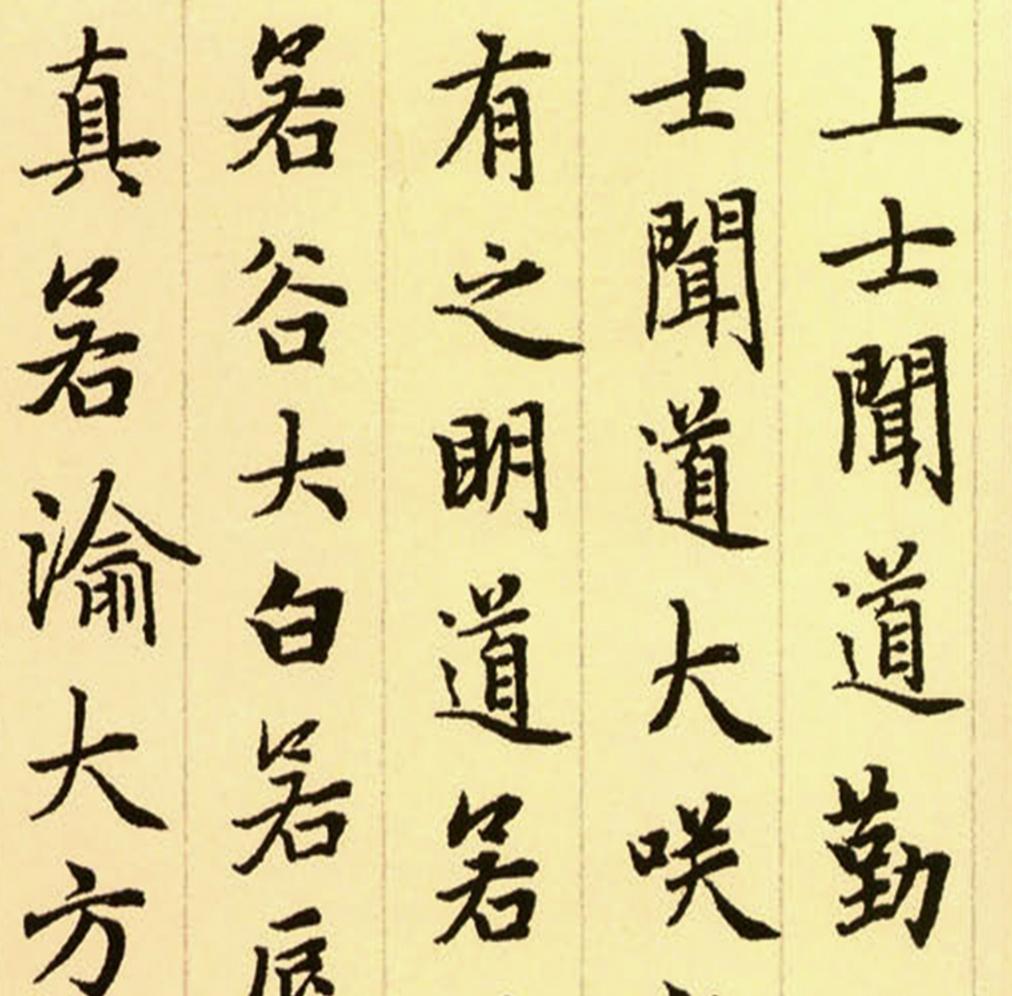 上士聞道勤
士聞道大咲
有之明道若
若谷大白若辰
真若渝大方